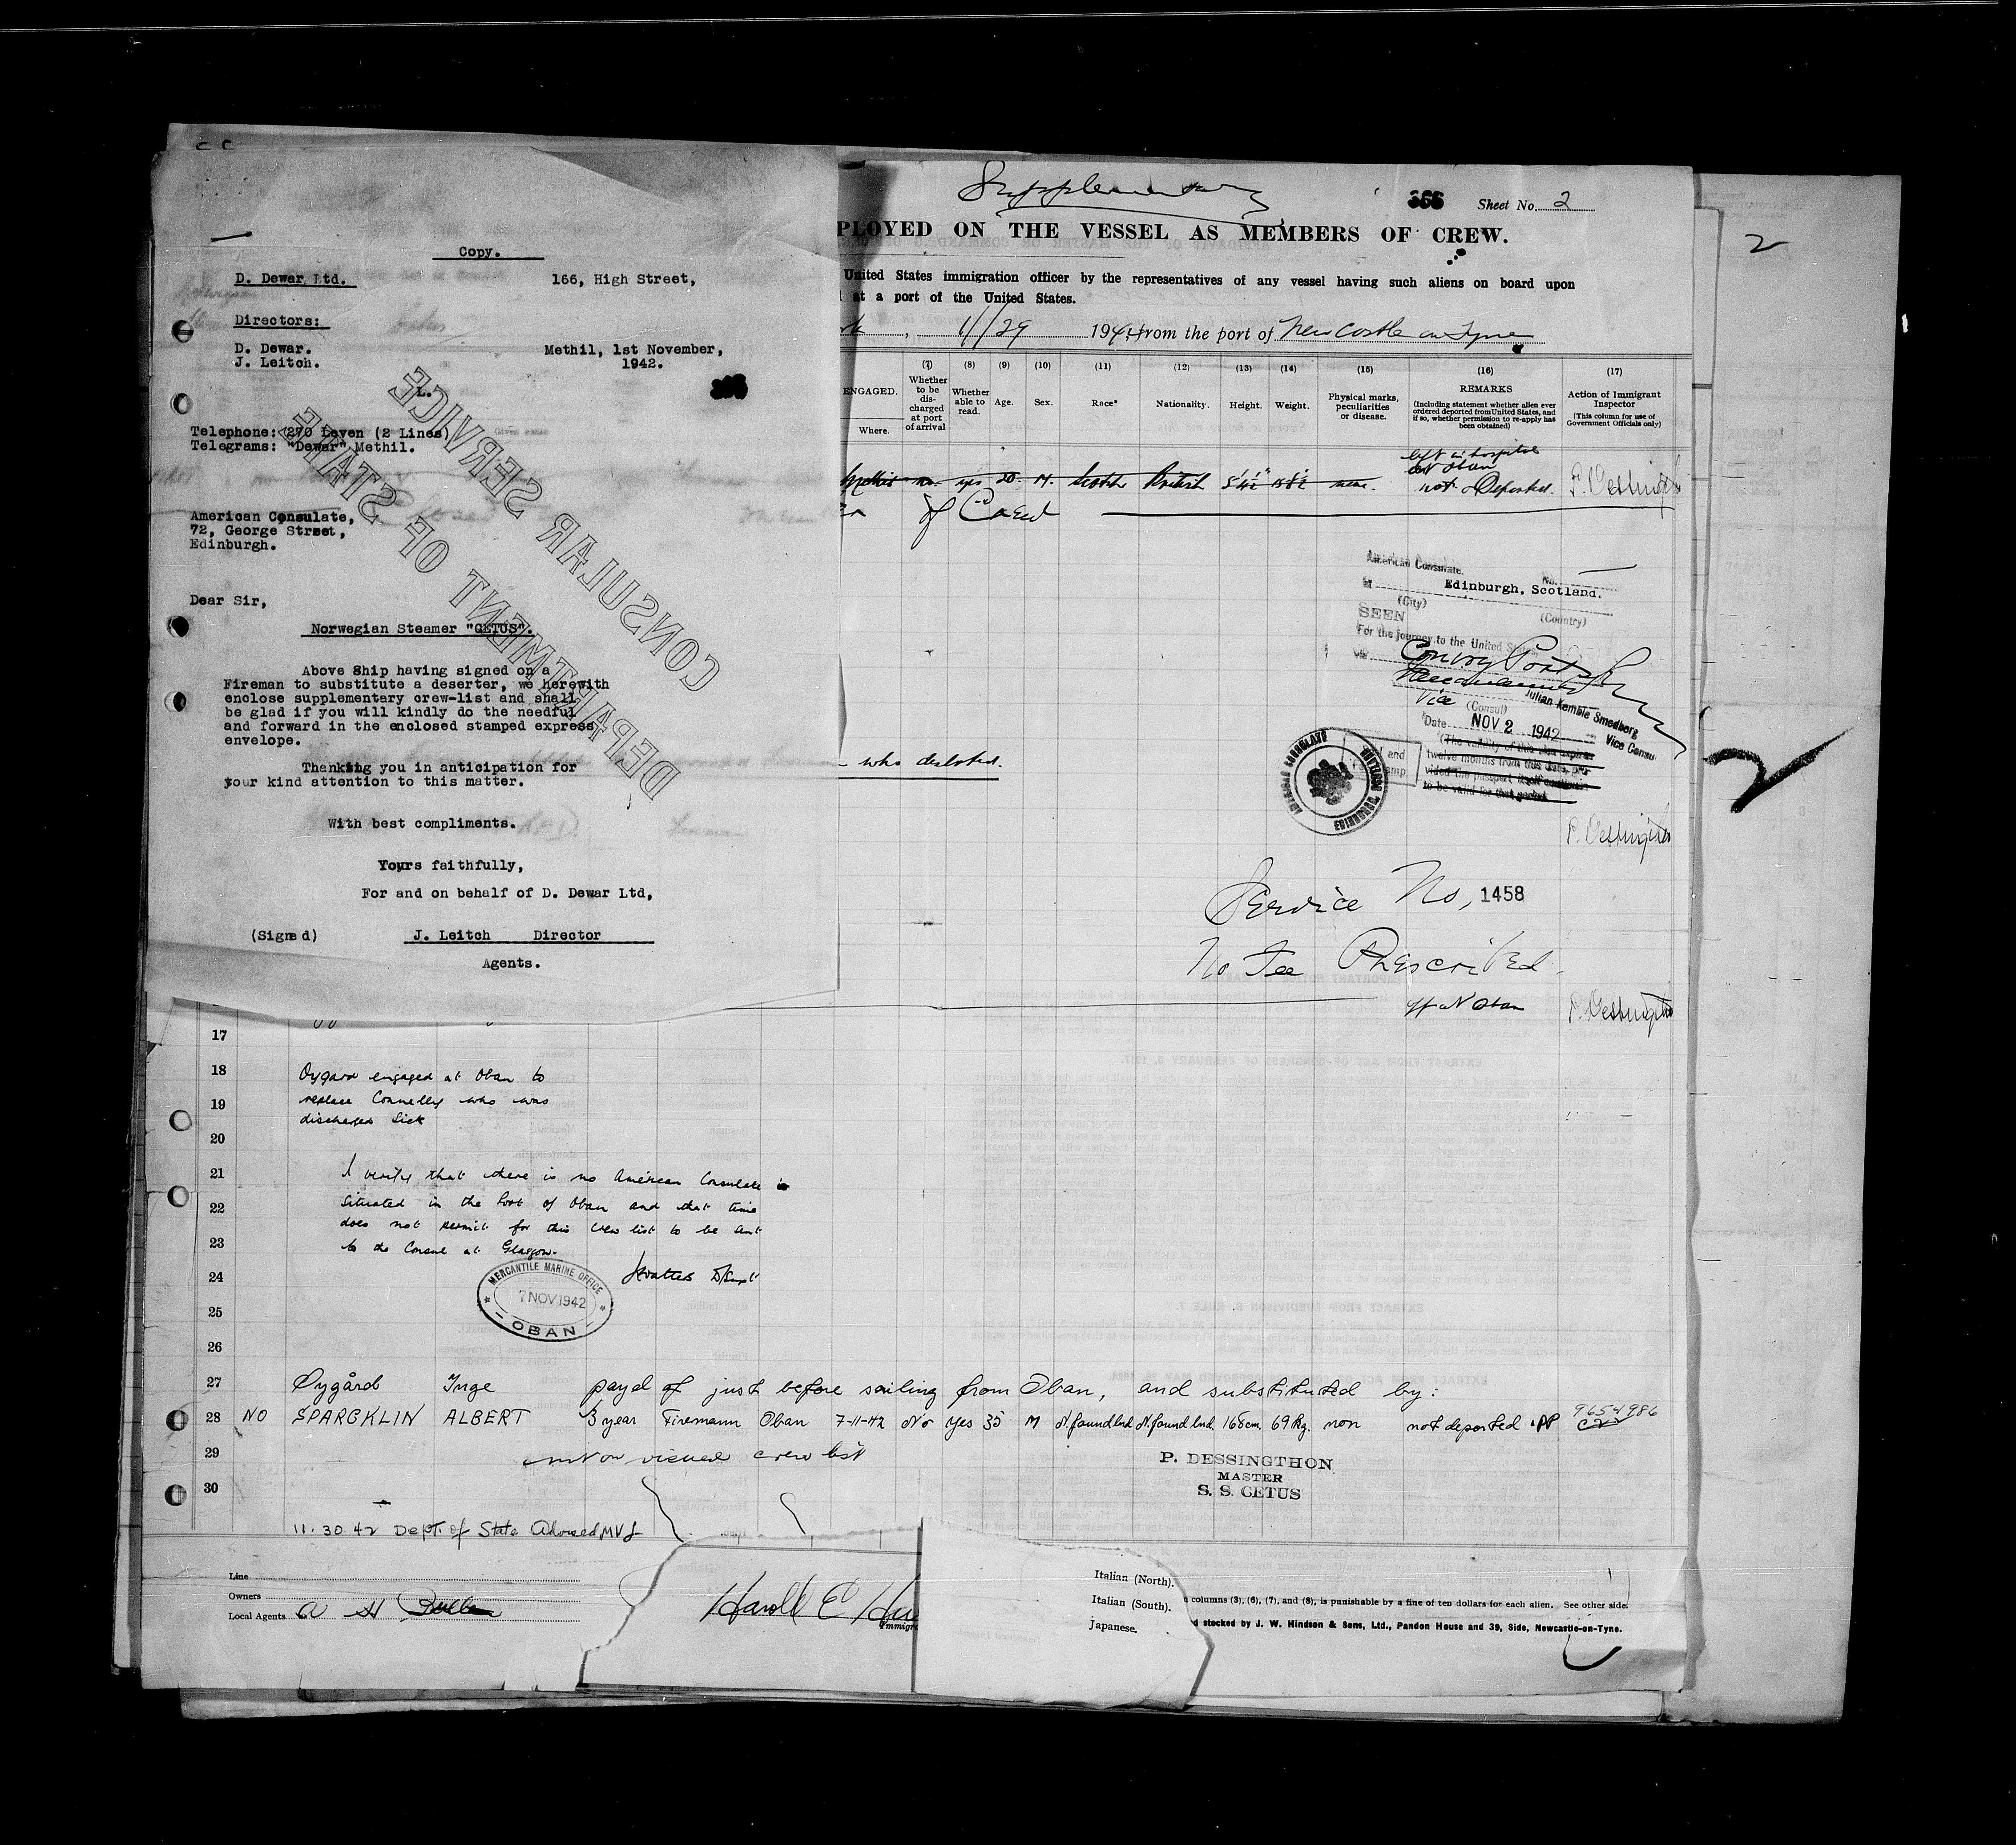 Copy.
D. Dewar Ltd. 166, High Street,
Directors:
D. Dewar. Methil, 1st November,
J. Leitch. 1942.
L.
Telephone: 270 Leven (2 Lines)
Telegrams: "Dewar" Methil.
American Consulate,
72, George Street,
Edinburgh.
Dear Sir,
Norwegian Steamer "CETUS".
Above Ship having signed on a
Fireman to substitute a deserter, we herewith
enclose supplementary crew-list and shall
be glad if you will kindly do the needful
and forward in the enclosed stamped express
envelope.
Thanking you in anticipation for
your kind attention to this matter.
With best compliments.
Yours faithfully,
For and on behalf of D. Dewar Ltd,
(Signed) J. Leitch Director
Agents.
DEPARTMENT OF STATE
CONSULAR SERVICE
Supplementary
366 Sheet No. 2
PLOYED ON THE VESSEL AS MEMBERS OF CREW.
United States immigration officer by the representatives of any vessel having such aliens on board upon
at a port of the United States.
11/29 194 from the port of Newcastle on Tyne
ENGAGED.
Where.
(7) Whether to be discharged at port of arrival
(8) Whether able to read.
(9) Age.
(10) Sex.
(11) Race*
(12) Nationality.
(13) Height.
(14) Weight.
(15) Physical marks, peculiarities or disease.
(16) REMARKS (Including statement whether alien ever ordered deported from United States, and if so, whether permission to re-apply has been obtained)
(17) Action of Immigrant Inspector (This column for use of Government Officials only)
left in hospital
at Oban
Methil no. yes 20 M. Scotch British none. not Deported. P. Dessingthon
of Crew
American Consulate. No.
at Edinburgh, Scotland.
(City) (Country)
SEEN
For the journey to the United States
via Convoy Port
Vice (Consul) Julian Kemble Smedberg
Date NOV 2 1942 Vice Consul
(The validity of this visa expires
twelve months from this date, pro-
vided the passport itself continues
to be valid for that period.
AMERICAN CONSULATE EDINBURGH, SCOTLAND
who deserted.
P. Dessingthon
Service No, 1458
No Fee Prescribed.
H N Oban P. Dessingthon
17
18 Oygard engaged at Oban to
19 replace Connelly who was
discharged Sick
20
21 I verify that there is no American Consulate
22 situated in the Port of Oban and that time
does not permit for this crew list to be sent
23 to the Consul at Glasgow.
24
MERCANTILE MARINE OFFICE
7 NOV 1942
OBAN
25
26
27 Øygård Inge payd of just before sailing from Oban, and substituted by:
28 NO SPARCKLIN ALBERT 3 year Firemann Oban 7-11-42 No Yes 35 M N.foundlnd N.foundlnd. 168cm. 69kg. non not deported PP 9654986
29 not on visaed crew list
P. DESSINGTHON
MASTER
S. S. CETUS
30
11.30.42 Dept. of State
Line
Owners
Local Agents
Harold E
Immigr
Italian (North).
Italian (South).
Japanese.
columns (3), (6), (7), and (8), is punishable by a fine of ten dollars for each alien. See other side.
d stocked by J. W. Hindson & Sons, Ltd., Pandon House and 39, Side, Newcastle-on-Tyne.
2
2